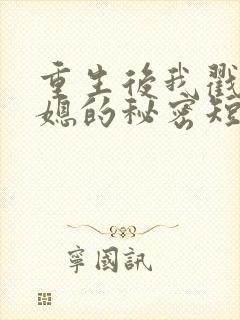 重生後我戳
媳的秘密短
寧國訊